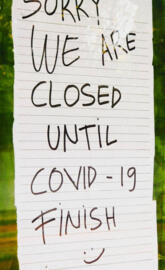 SORRY
WE ARE
CLOSED
UNTIL
COVID-19
FINISH